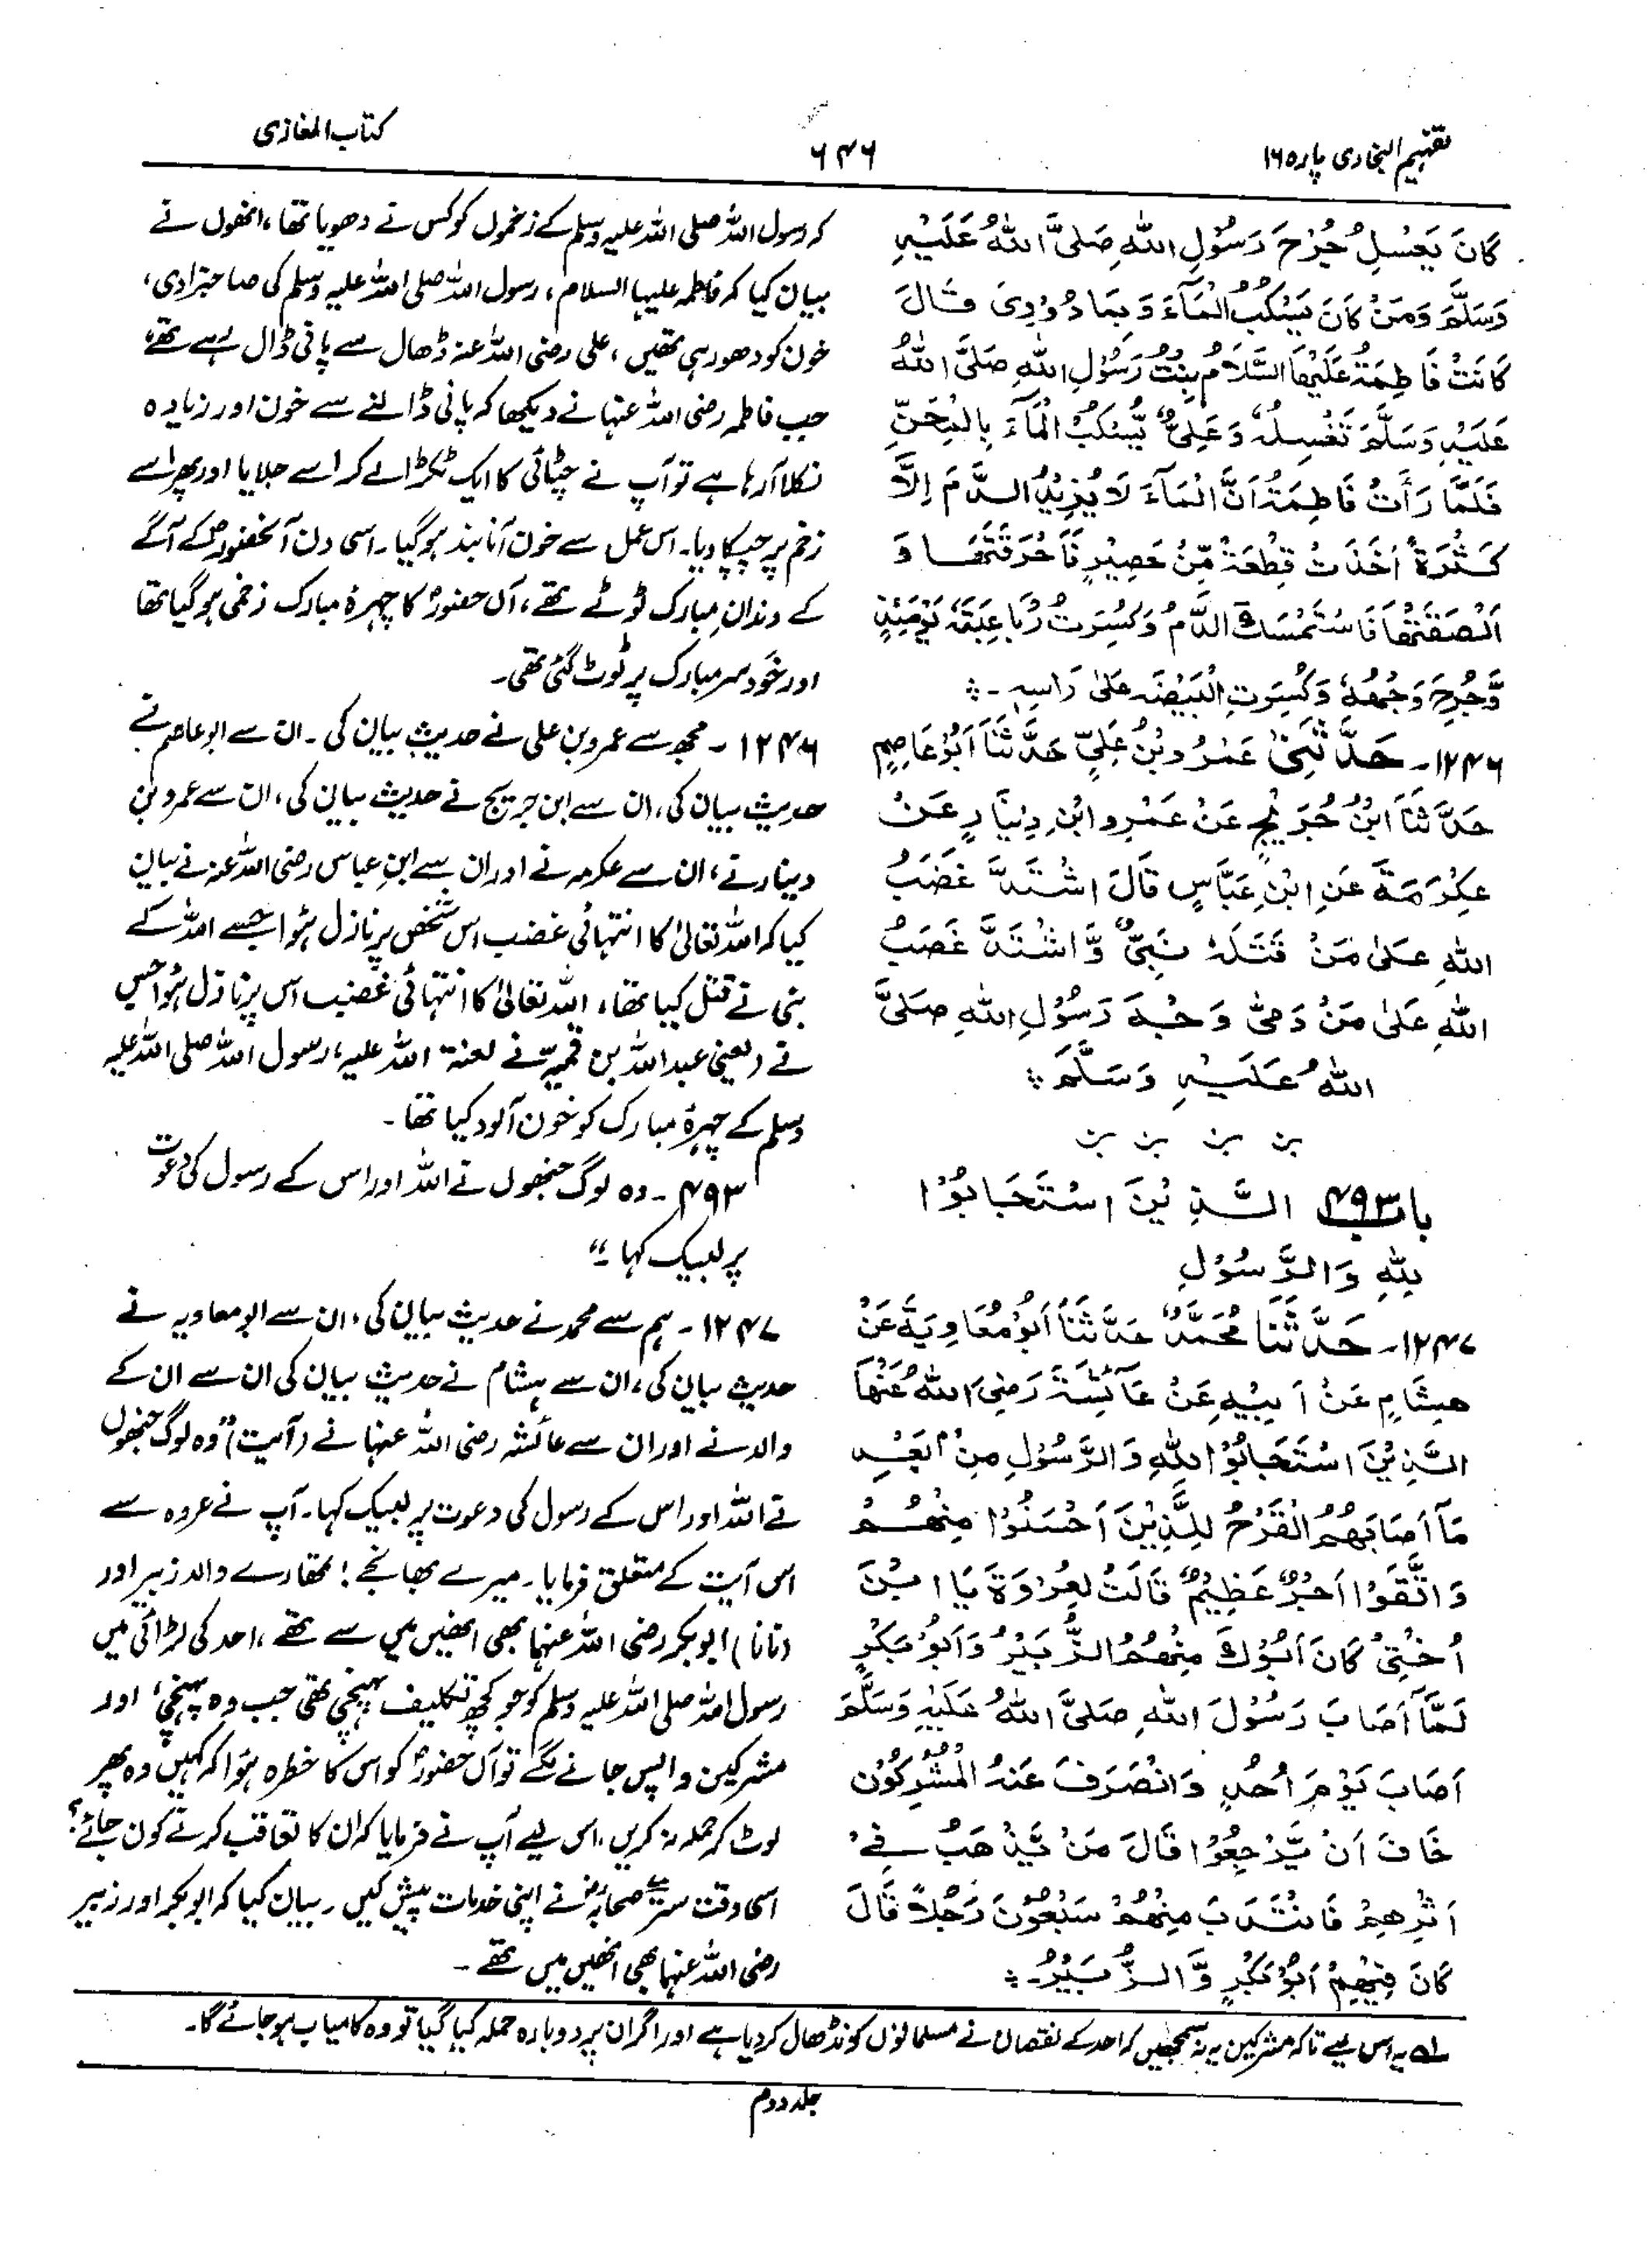 تفہیم البخاری پارہ ۱۶
۶۴۶
کتاب المغازی
كَانَ يَغْسِلُ جُرْحَ رَسُوْلِ اللهِ صَلَّى اللهُ عَلَيْهِ
وَسَلَّمَ وَمَنْ كَانَ يَسْكُبُ الْمَآءَ وَبِمَا دُوْوِىَ قَالَ
كَانَتْ فَاطِمَةُ عَلَيْهَا السَّلَامُ بِنْتُ رَسُوْلِ اللهِ صَلَّى اللهُ
عَلَيْهِ وَسَلَّمَ تَغْسِلُهٗ وَعَلِىٌّ يَّسْكُبُ الْمَآءَ بِالْمِجَنِّ
فَلَمَّا رَأَتْ فَاطِمَةُ اَنَّ الْمَآءَ لَا يُزِيْدُ الدَّمَ اِلَّا
كَثْرَةً اَخَذَتْ قِطْعَةً مِّنْ حَصِيْرٍ فَاَحْرَقَتْهَا وَ
اَلْصَقَتْهَا فَاسْتَمْسَكَ الدَّمُ وَكُسِرَتْ رُبَاعِيَتُهٗ يَوْمَئِذٍ
وَّجُرِحَ وَجْهُهٗ وَكُسِرَتِ الْبَيْضَةُ عَلٰى رَاسِهٖ۔
۱۲۴۶۔ حَدَّثَنِىْ عَمْرُو بْنُ عَلِيٍّ حَدَّثَنَا اَبُوْ عَاصِمٍ
حَدَّثَنَا ابْنُ جُرَيْجٍ عَنْ عَمْرِو ابْنِ دِيْنَارٍ عَنْ
عِكْرَمَةَ عَنِ ابْنِ عَبَّاسٍ قَالَ اشْتَدَّ غَضَبُ
اللهِ عَلٰى مَنْ قَتَلَهٗ نَبِىٌّ وَّاشْتَدَّ غَضَبُ
اللهِ عَلٰى مَنْ دَمّٰى وَجْهَ رَسُوْلِ اللهِ صَلَّى
اللهُ عَلَيْهِ وَسَلَّمَ
باب ۴۹۳ اَلَّذِيْنَ اسْتَجَابُوْا
لِلّٰهِ وَالرَّسُوْلِ
۱۲۴۷۔ حَدَّثَنَا مُحَمَّدٌ حَدَّثَنَا اَبُوْ مُعَاوِيَةَ عَنْ
هِشَامٍ عَنْ اَبِيْهِ عَنْ عَآئِشَةَ رَضِىَ اللهُ عَنْهَا
الَّذِيْنَ اسْتَجَابُوْا لِلّٰهِ وَالرَّسُوْلِ مِنْ بَعْدِ
مَآ اَصَابَهُمُ الْقَرْحُ لِلَّذِيْنَ اَحْسَنُوْا مِنْهُمْ
وَاتَّقَوْا اَجْرٌ عَظِيْمٌ قَالَتْ لِعُرْوَةَ يَا ابْنَ
اُخْتِىْ كَانَ اَبُوْكَ مِنْهُمُ الزُّبَيْرُ وَاَبُوْ بَكْرٍ
لَمَّا اَصَابَ رَسُوْلَ اللهِ صَلَّى اللهُ عَلَيْهِ وَسَلَّمَ
اَصَابَ يَوْمَ اُحُدٍ وَانْصَرَفَ عَنْهُ الْمُشْرِكُوْنَ
خَافَ اَنْ يَّرْجِعُوْا قَالَ مَنْ يَّذْهَبُ فِىْ
اَثْرِهِمْ فَانْتَدَبَ مِنْهُمْ سَبْعُوْنَ رَجُلًا قَالَ
كَانَ فِيْهِمْ اَبُوْ بَكْرٍ وَّالزُّبَيْرُ۔
کہ رسول اللہ صلی اللہ علیہ وسلم کے زخموں کو کس نے دھویا تھا، انھوں نے
بیان کیا کہ فاطمہ علیہا السلام، رسول اللہ صلی اللہ علیہ وسلم کی صاحبزادی،
خون کو دھو رہی تھیں، علی رضی اللہ عنہ ڈھال سے پانی ڈال رہے تھے،
جب فاطمہ رضی اللہ عنہا نے دیکھا کہ پانی ڈالنے سے خون اور زیادہ
نکلا آ رہا ہے تو آپ نے چٹائی کا ایک ٹکڑا لے کر اسے جلایا اور پھر اسے
زخم پر چپکا دیا۔ اس عمل سے خون آنا بند ہو گیا۔ اسی دن آنحضورؐ کے آگے
کے دندانِ مبارک ٹوٹے تھے، آں حضورؐ کا چہرۂ مبارک زخمی ہو گیا تھا
اور خَود سر مبارک پر ٹوٹ گئی تھی۔
۱۲۴۶۔ مجھ سے عمرو بن علی نے حدیث بیان کی۔ ان سے ابو عاصم نے
حدیث بیان کی، ان سے ابن جریج نے حدیث بیان کی، ان سے عمرو بن
دینار نے، ان سے عکرمہ نے اور ان سے ابنِ عباس رضی اللہ عنہ نے بیان
کیا کہ اللہ تعالیٰ کا انتہائی غضب اس شخص پر نازل ہوا جسے اللہ کے
نبی نے قتل کیا تھا، اللہ تعالیٰ کا انتہائی غضب اس پر نازل ہوا جس
نے (یعنی عبداللہ بن قمیہ نے لعنۃ اللہ علیہ) رسول اللہ صلی اللہ علیہ
وسلم کے چہرۂ مبارک کو خون آلود کیا تھا۔
۴۹۳۔ وہ لوگ جنھوں نے اللہ اور اس کے رسول کی دعوت
پر لبیک کہا۔"
۱۲۴۷۔ ہم سے محمد نے حدیث بیان کی، ان سے ابو معاویہ نے
حدیث بیان کی، ان سے ہشام نے حدیث بیان کی ان سے ان کے
والد نے اور ان سے عائشہ رضی اللہ عنہا نے (آیت) "وہ لوگ جنھوں
نے اللہ اور اس کے رسول کی دعوت پر لبیک کہا۔ آپ نے عروہ سے
اس آیت کے متعلق فرمایا۔ میرے بھانجے! تمھارے والد زبیر اور
(نانا) ابوبکر رضی اللہ عنہما بھی انھیں میں سے تھے، احد کی لڑائی میں
رسول اللہ صلی اللہ علیہ وسلم کو جو کچھ تکلیف پہنچی تھی جب وہ پہنچی، اور
مشرکین واپس جانے لگے تو آں حضورؐ کو اس کا خطرہ ہوا کہ کہیں وہ پھر
لوٹ کر حملہ نہ کریں، اس لیے آپ نے فرمایا کہ ان کا تعاقب کرنے کون جائے؟
اسی وقت ستر صحابہؓ نے اپنی خدمات پیش کیں۔ بیان کیا کہ ابوبکر اور زبیر
رضی اللہ عنہما بھی انھیں میں تھے۔
لہ یہ اس لیے تاکہ مشرکین یہ نہ سمجھیں کہ احد کے نقصان نے مسلمانوں کو نڈھال کر دیا ہے اور اگر ان پر دوبارہ حملہ کیا گیا تو وہ کامیاب ہو جائے گا۔
جلد دوم